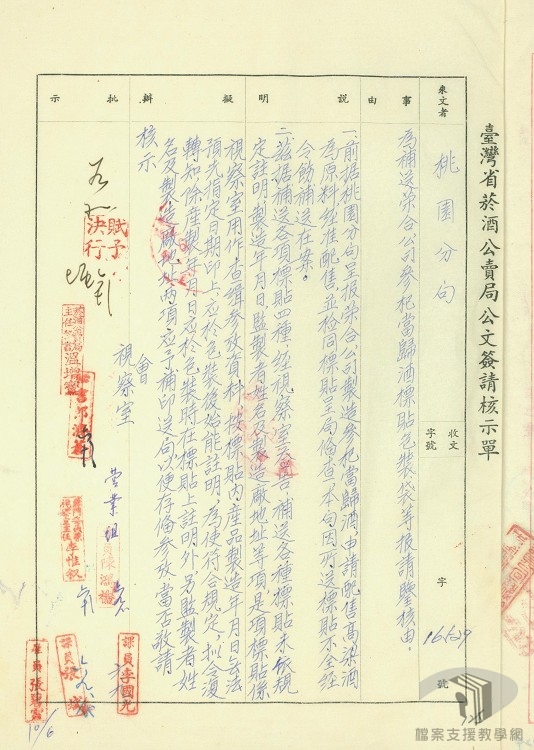 臺灣省菸酒公賣局公文簽請核示單
來文者
桃園分局
收文
字號
字
16529
號
事由
為補送榮合公司參杞當歸酒標貼包裝袋等報請鑒核由
說明
一、前據桃園分局呈报榮合公司製造參杞當歸酒申請配售高粱酒
為原料經准配售並检同標貼呈局備查本局因所送標貼不全經
令飭補送在案
二、茲据補送各項標貼四種經視察室簽
補送各種標貼未依規
定註明製造年月日監製者姓名及製造廠地址等項是項標貼係
視察室用作
參攷資料
標貼內產品製造年月日無法
預先指定日期印上應於包裝後始能註明為使符合規定拟令復
轉知除產製年月日應於包裝時在標貼上註明外另監製者姓
名及製造廠地址两項應予補印送局以便存備參攷當否敬請
核示
擬辦
會
視察室
營業組
批示
賦予
決行
溫增
李惟
課員李國光
課員張
雇員張
10/6
檔案支援教學網